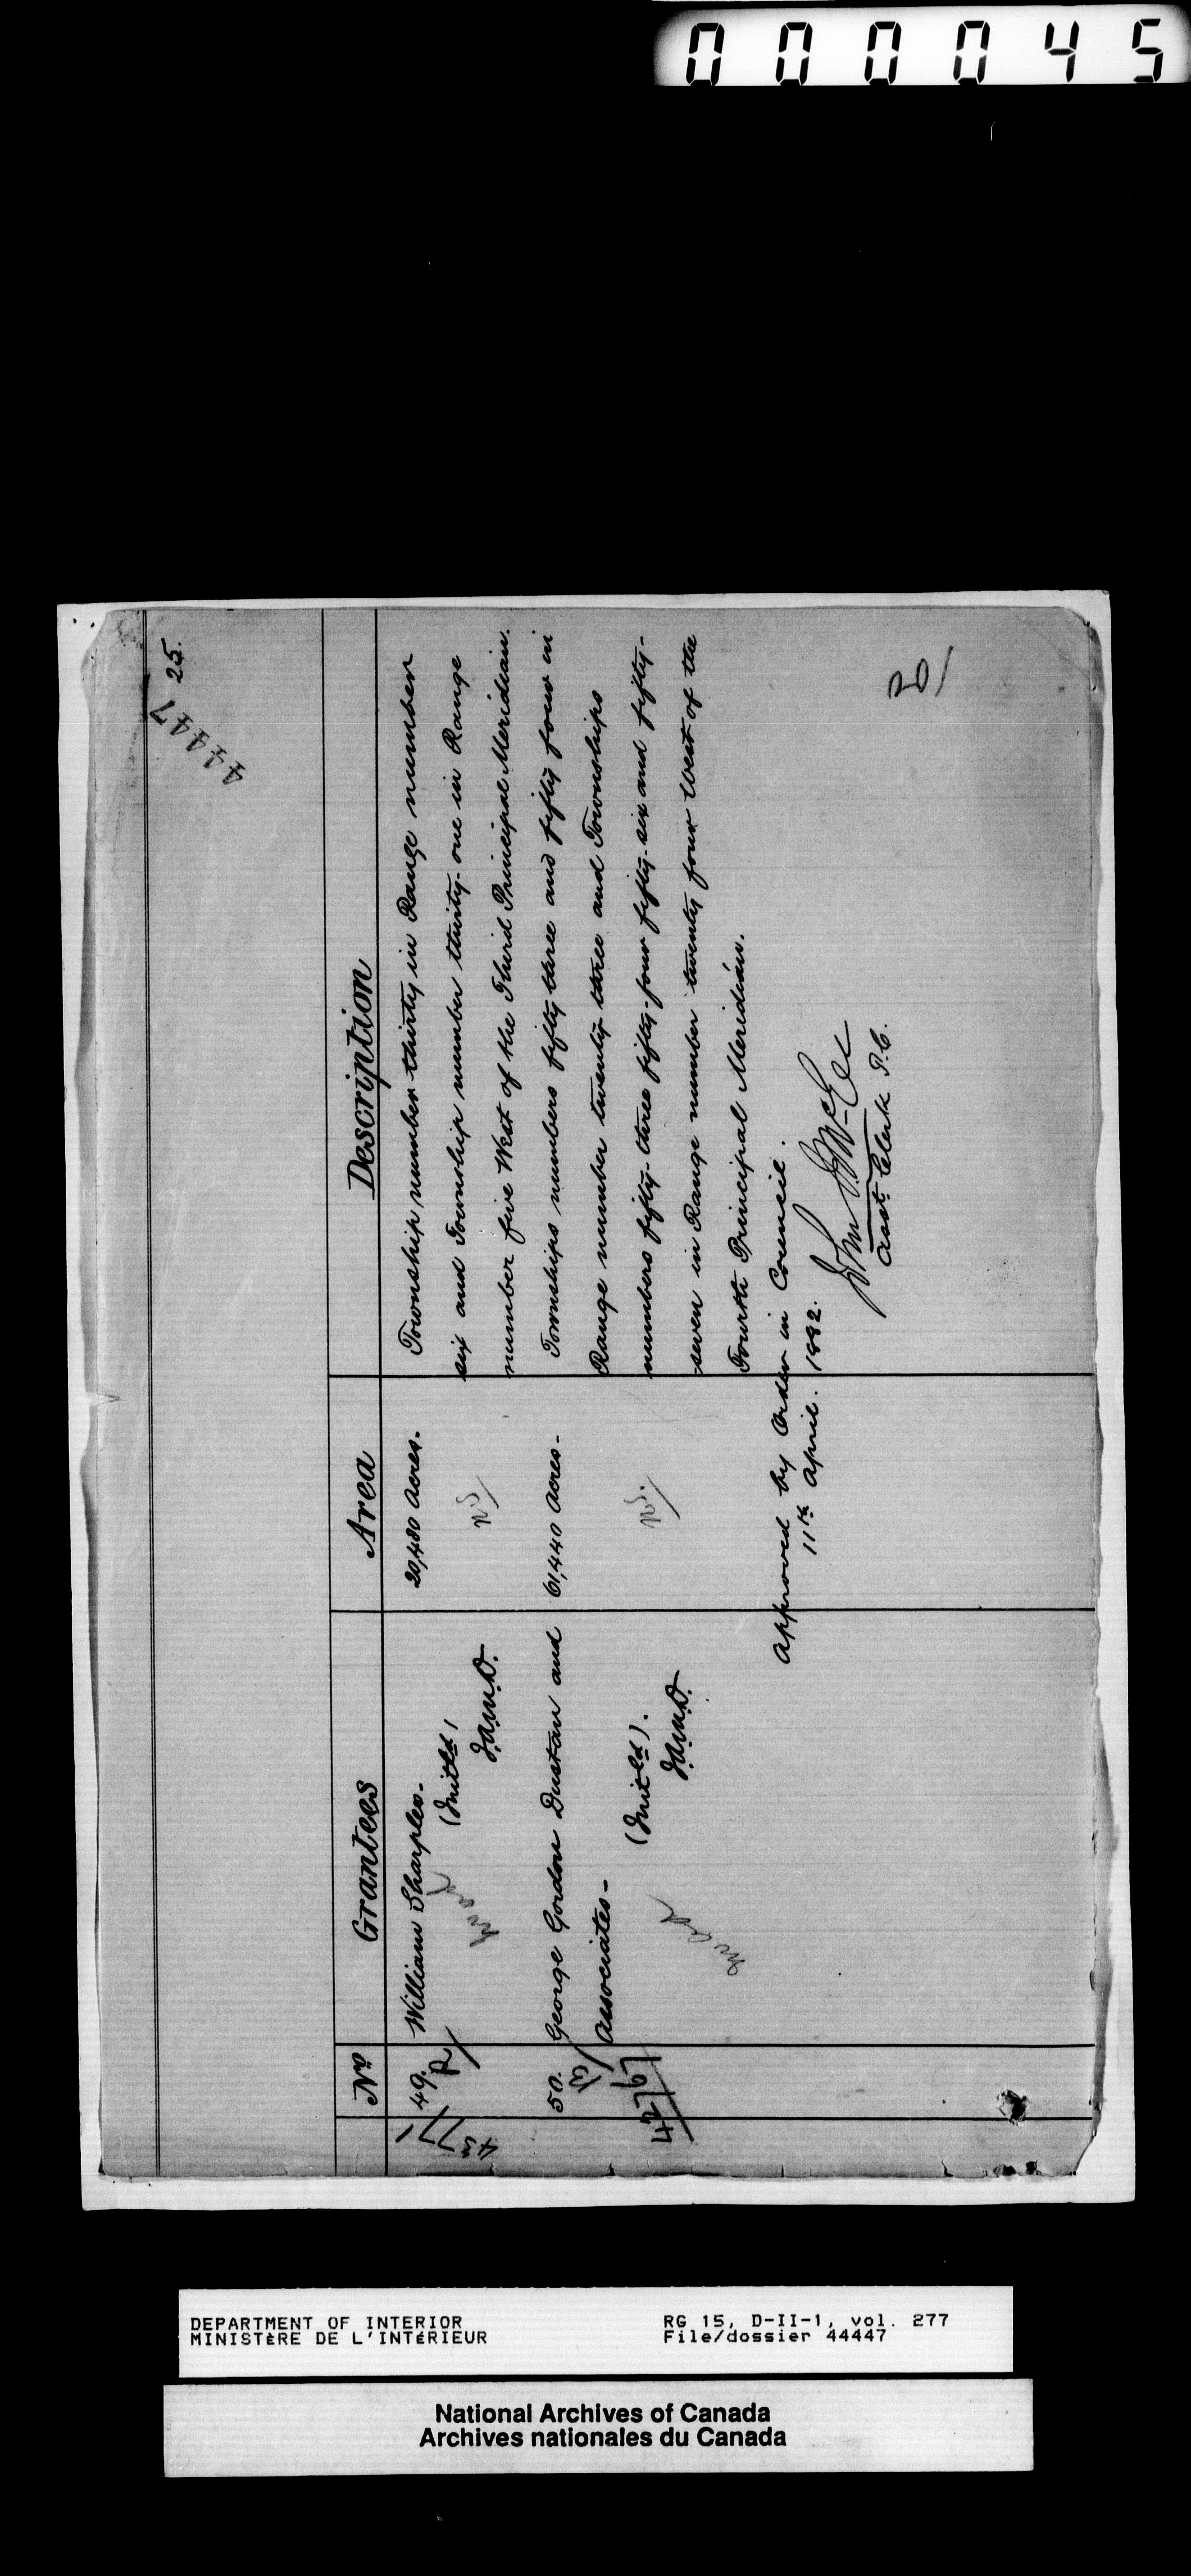 000045
25.
44447
No Grantees Area Description
43771
49. William Sharples. 20,480 Acres. Township number thirty in Range number
six and Township number thirty-one in Range
number five West of the Third Principal Meridian.
(Initld)
J.A.M.D.
50. George Gordon Dustan and 61,440 Acres- Townships numbers fifty three and fifty four in
Associates- Range number twenty-three and Townships
numbers fifty-three fifty-four fifty-six and fifty-
seven in Range number twenty four West of the
Fourth Principal Meridian.
(Initld).
J.A.M.D.
Approved by Order in Council.
11th April. 1882.
John J. McGee
Asst. Clerk P.C.
201
DEPARTMENT OF INTERIOR
MINISTÈRE DE L'INTÉRIEUR
RG 15, D-II-1, vol. 277
File/dossier 44447
National Archives of Canada
Archives nationales du Canada